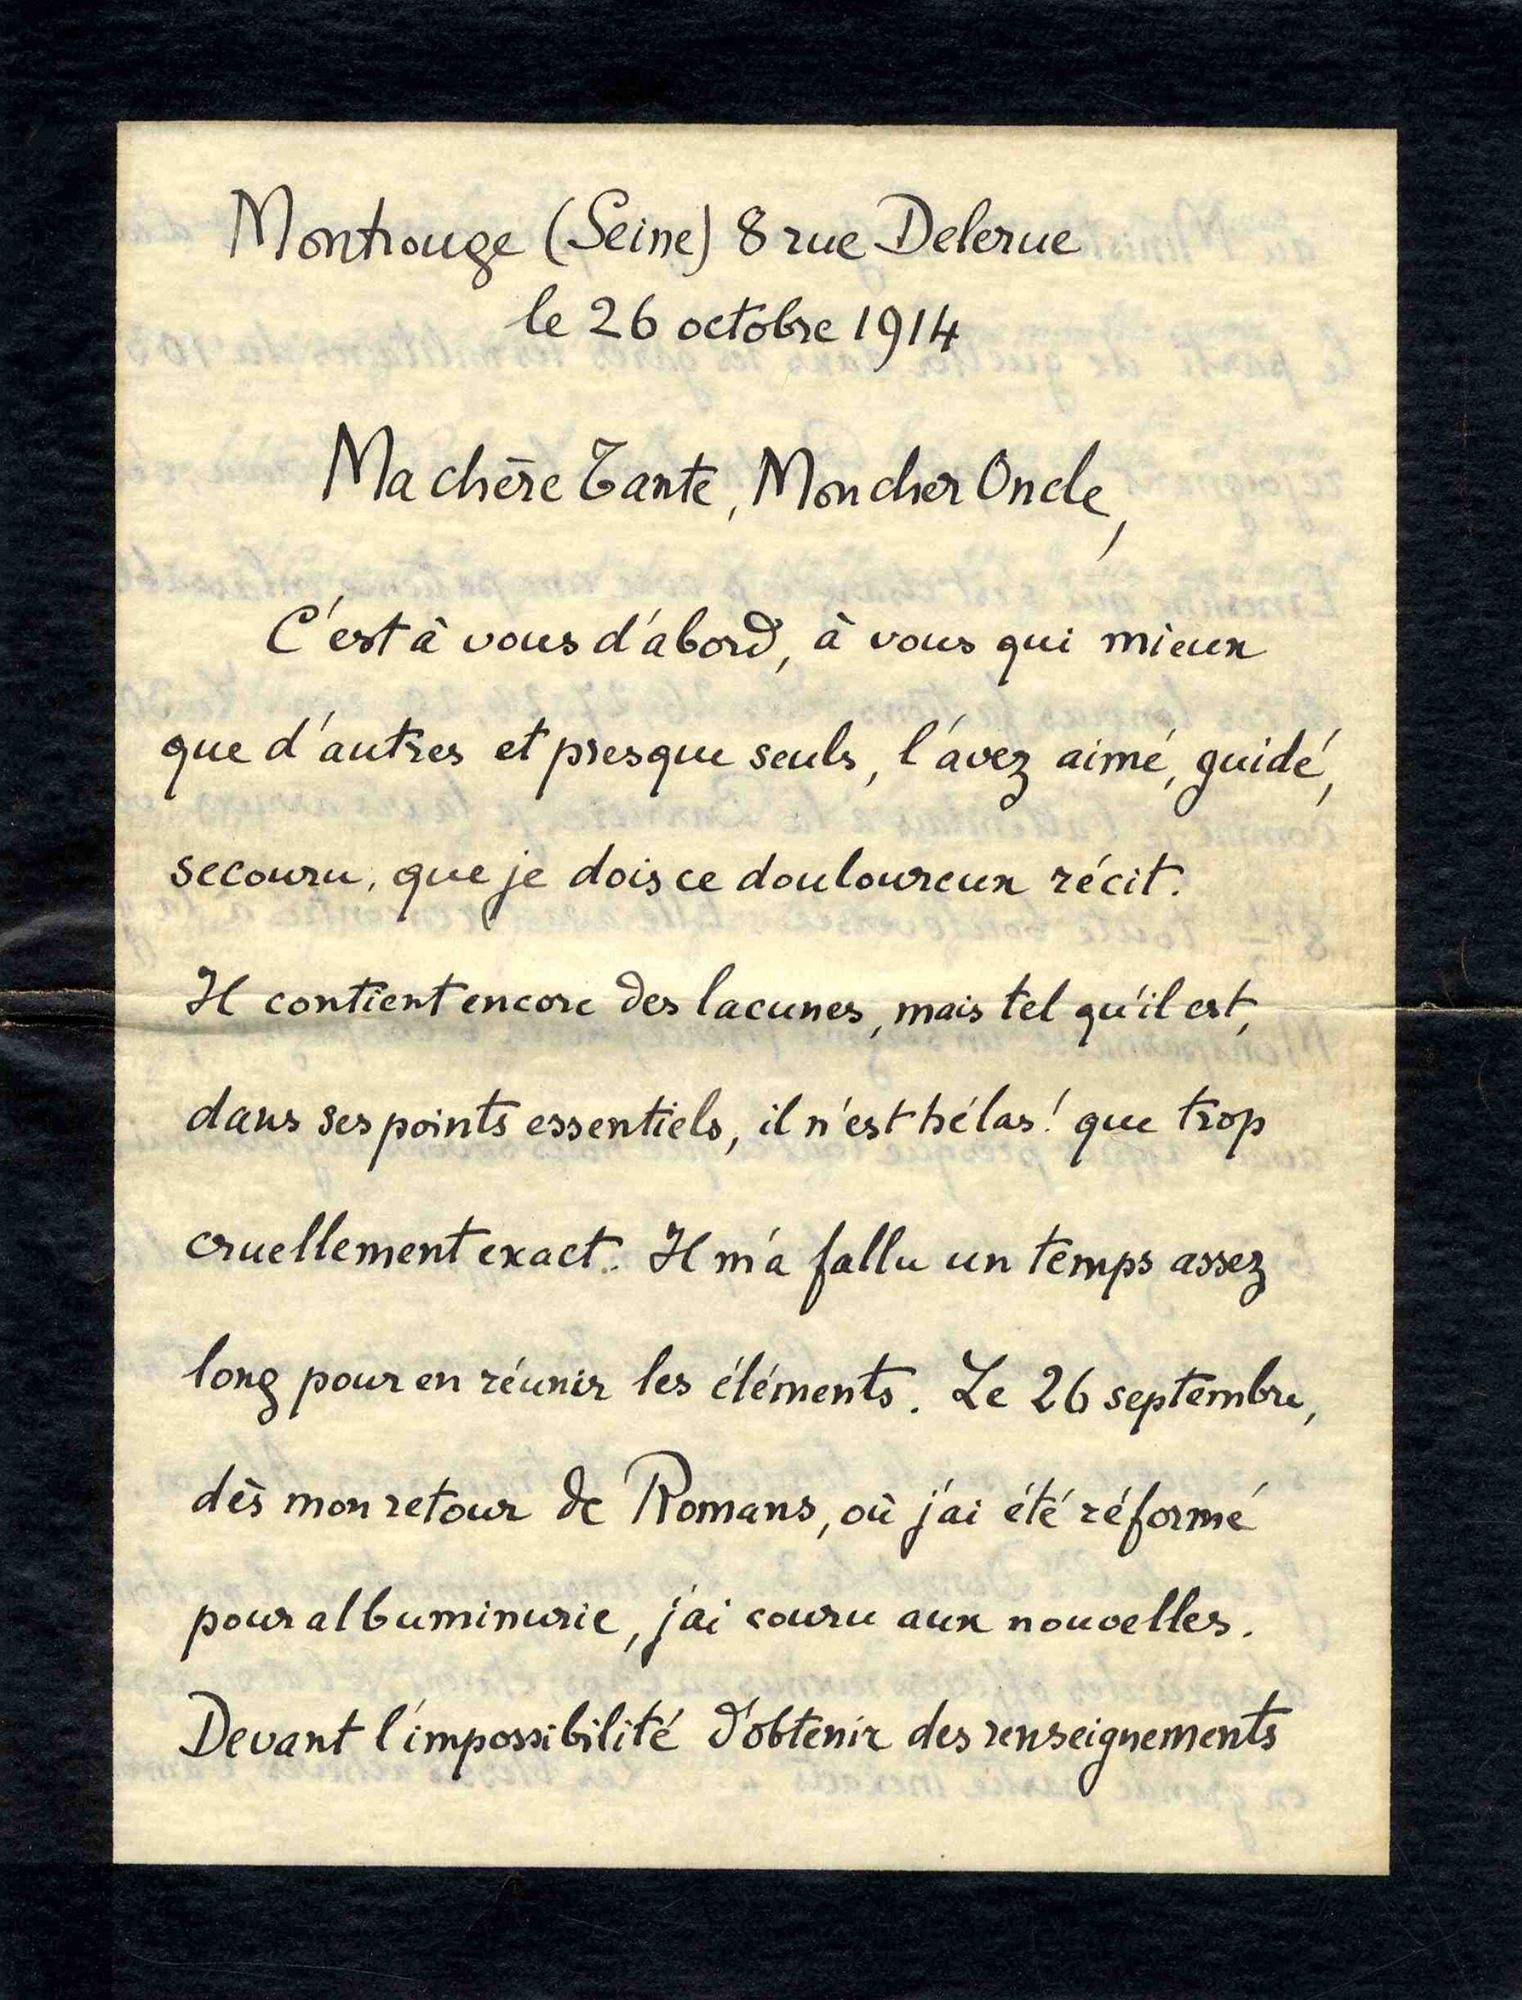 Montrouge (Seine) 8 rue Delerue
le 26 octobre 1914
Ma chère Tante, Mon cher Oncle,
C'est à vous d'abord, à vous qui mieux
que d'autres et presque seuls, l'avez aimé, guidé,
secouru, que je dois ce douloureux récit.
Il contient encore des lacunes, mais tel qu'il est,
dans ses points essentiels, il n'est hélas! que trop
cruellement exact. Il m'a fallu un temps assez
long pour en réunir les éléments. Le 26 septembre,
dès mon retour de Romans, où j'ai été réformé
pour albuminurie, j'ai couru aux nouvelles.
Devant l'impossibilité d'obtenir des renseignements